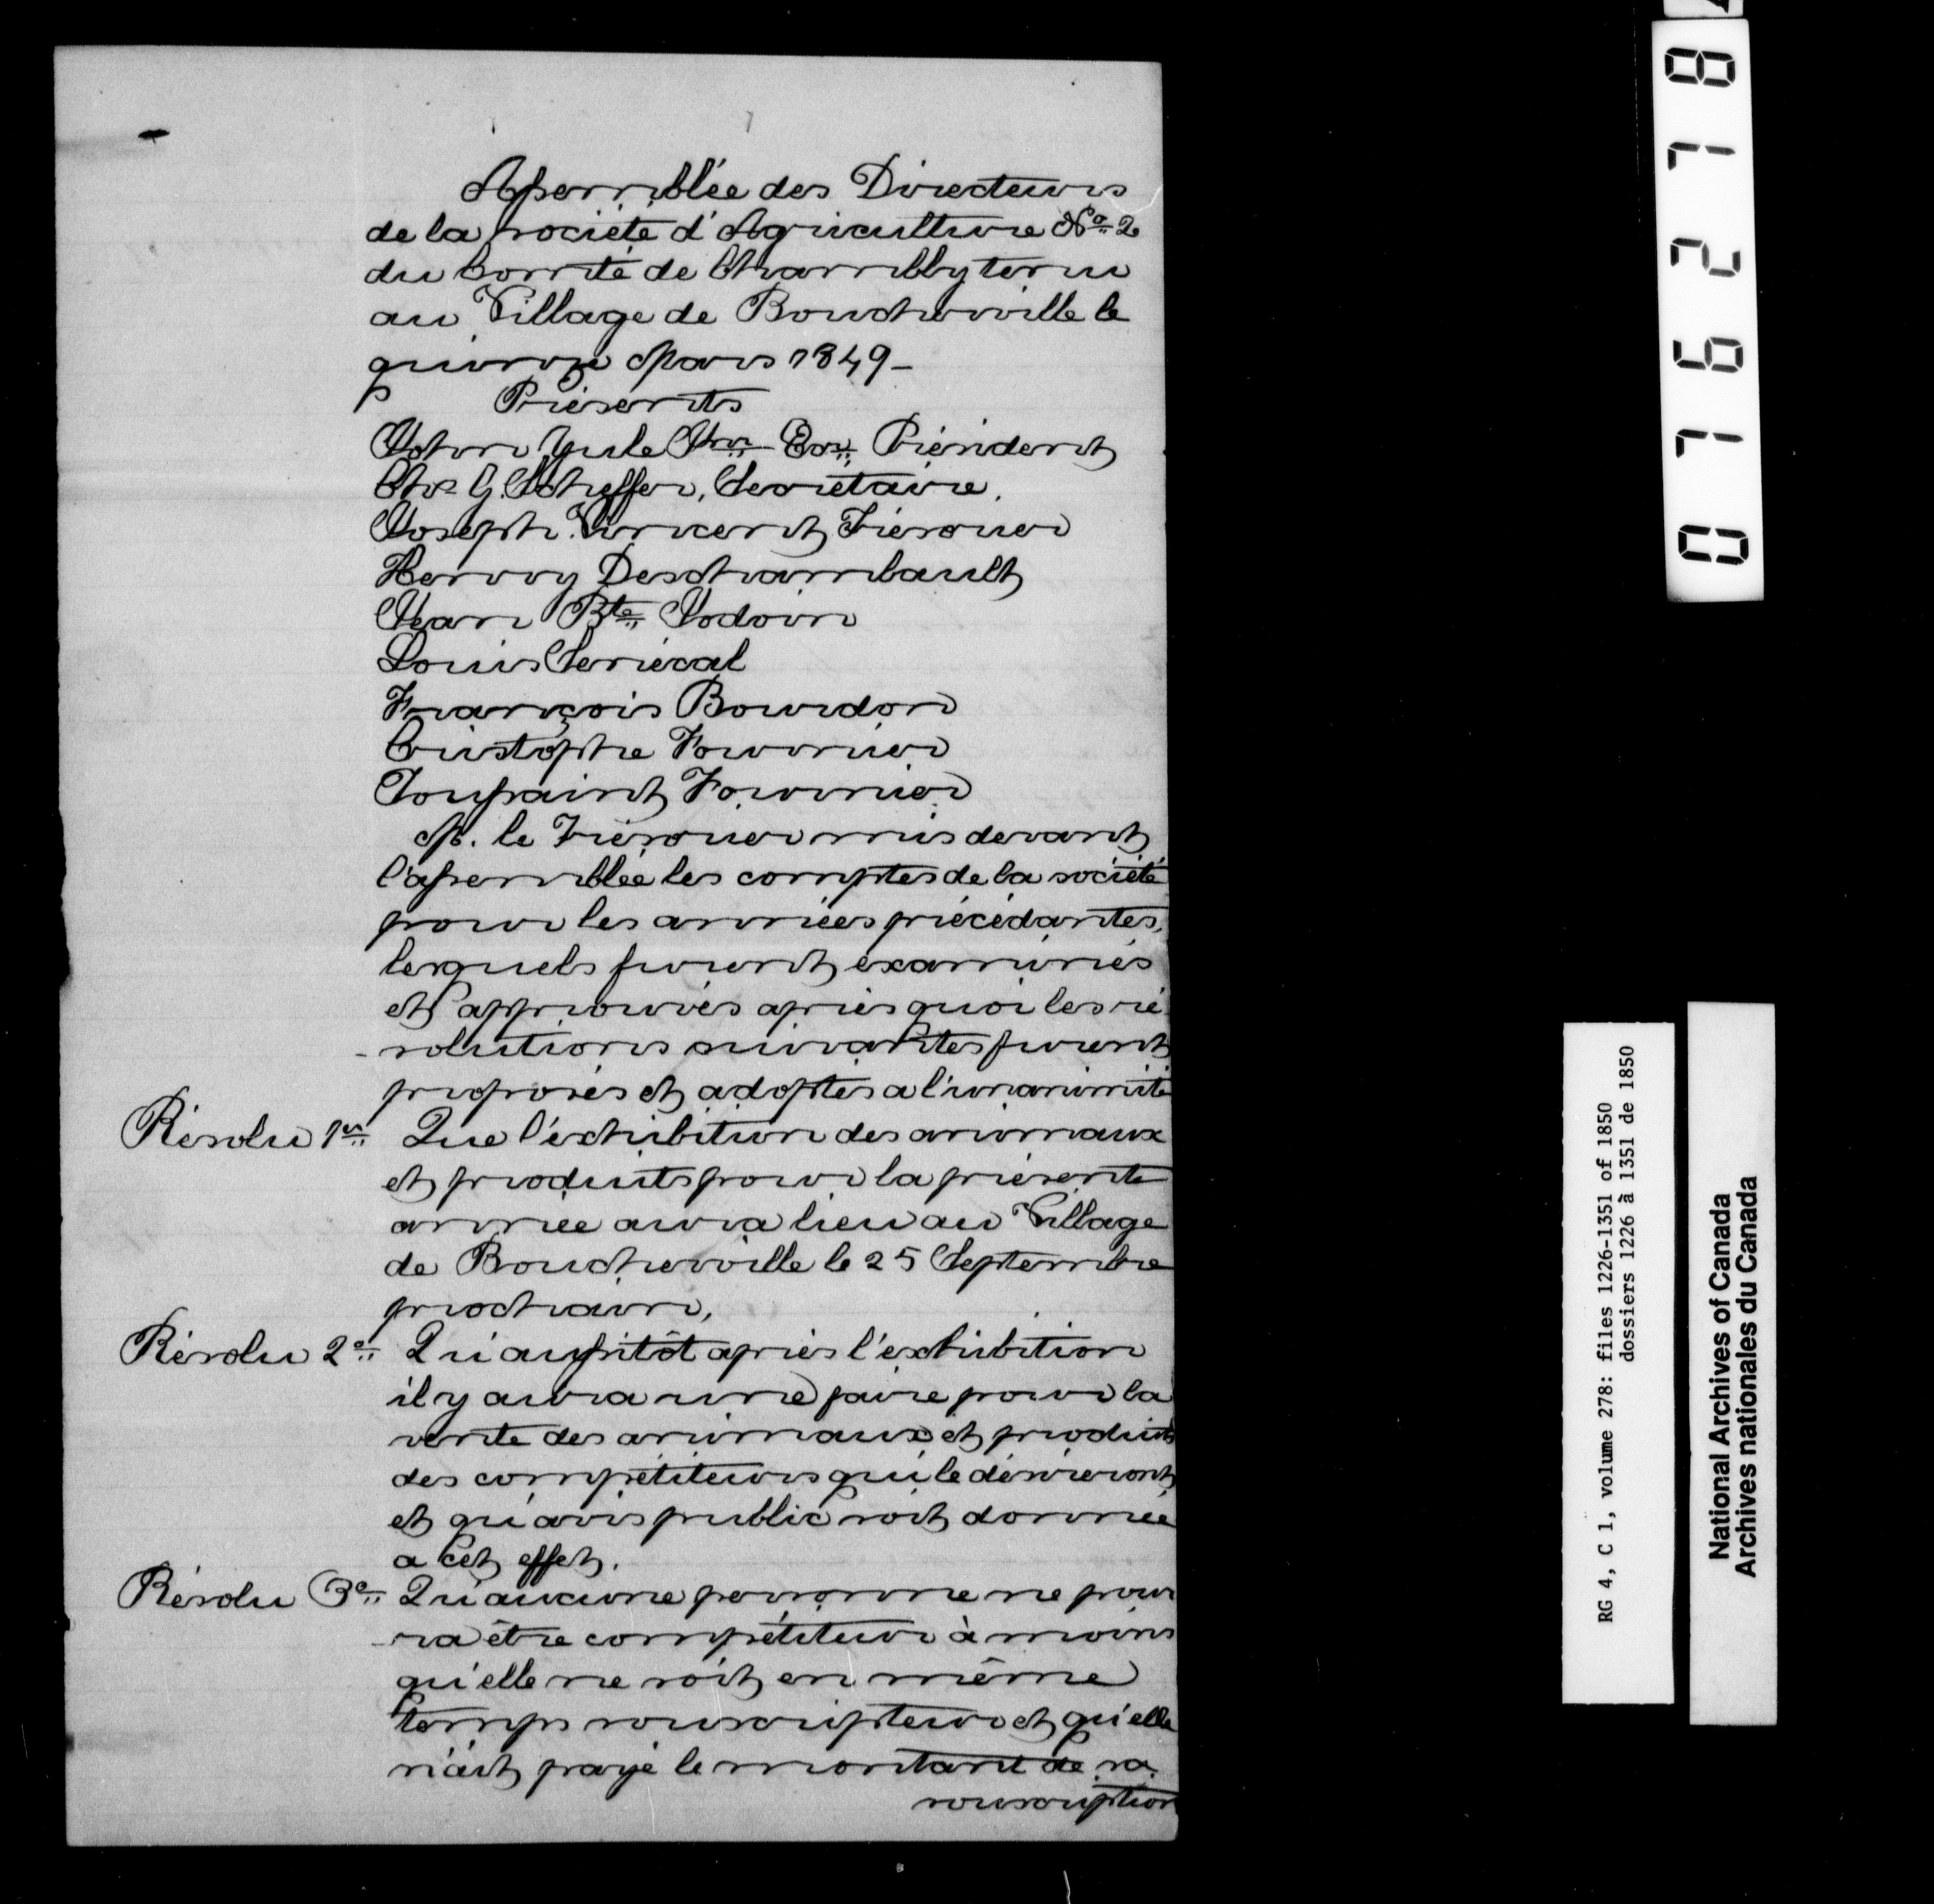 Assemblée des Directeurs
de la société d'Agriculture No. 2
du Comté de Chambly tenu
au Village de Boucherville le
quinze Mars 1849 -
Présents
John Yule Jnr. Ecr. Président
Chs. G. Scheffer, Secrétaire.
Joseph Vincent Trésorier
Hervey Deschambault
Jean Bte. Jodoin
Louis Senécal
François Bourdon
Cristophe Fournier
Toussaint Fournier
M. le Trésorier mis devant
l'assemblée les comptes de la société
pour les années précédantes,
lesquels furent examinés
et approuvés après quoi les ré
-solutions suivantes furent
proposés et adoptés a l'unanimité
Résolu 1er. Que l'exhibition des animaux
et produits pour la présente
année aura lieu au Village
de Boucherville le 25 Septembre
prochain,
Résolu 2e. Qu'aussitôt après l'exhibition
il y aura une faire pour la
vente des animaux et produits
des compétiteurs qui le désireront
et qu'avis public soit donnée
a cet effet.
Résolu 3e. Qu'aucune personne ne pour
-ra être compétiteur à moins
qu'elle ne soit en même
temps souscripteur et qu'elle
n'ait payé le montant de sa
souscription
076278
RG 4, C 1, volume 278: files 1226-1351 of 1850
dossiers 1226 à 1351 de 1850
National Archives of Canada
Archives nationales du Canada